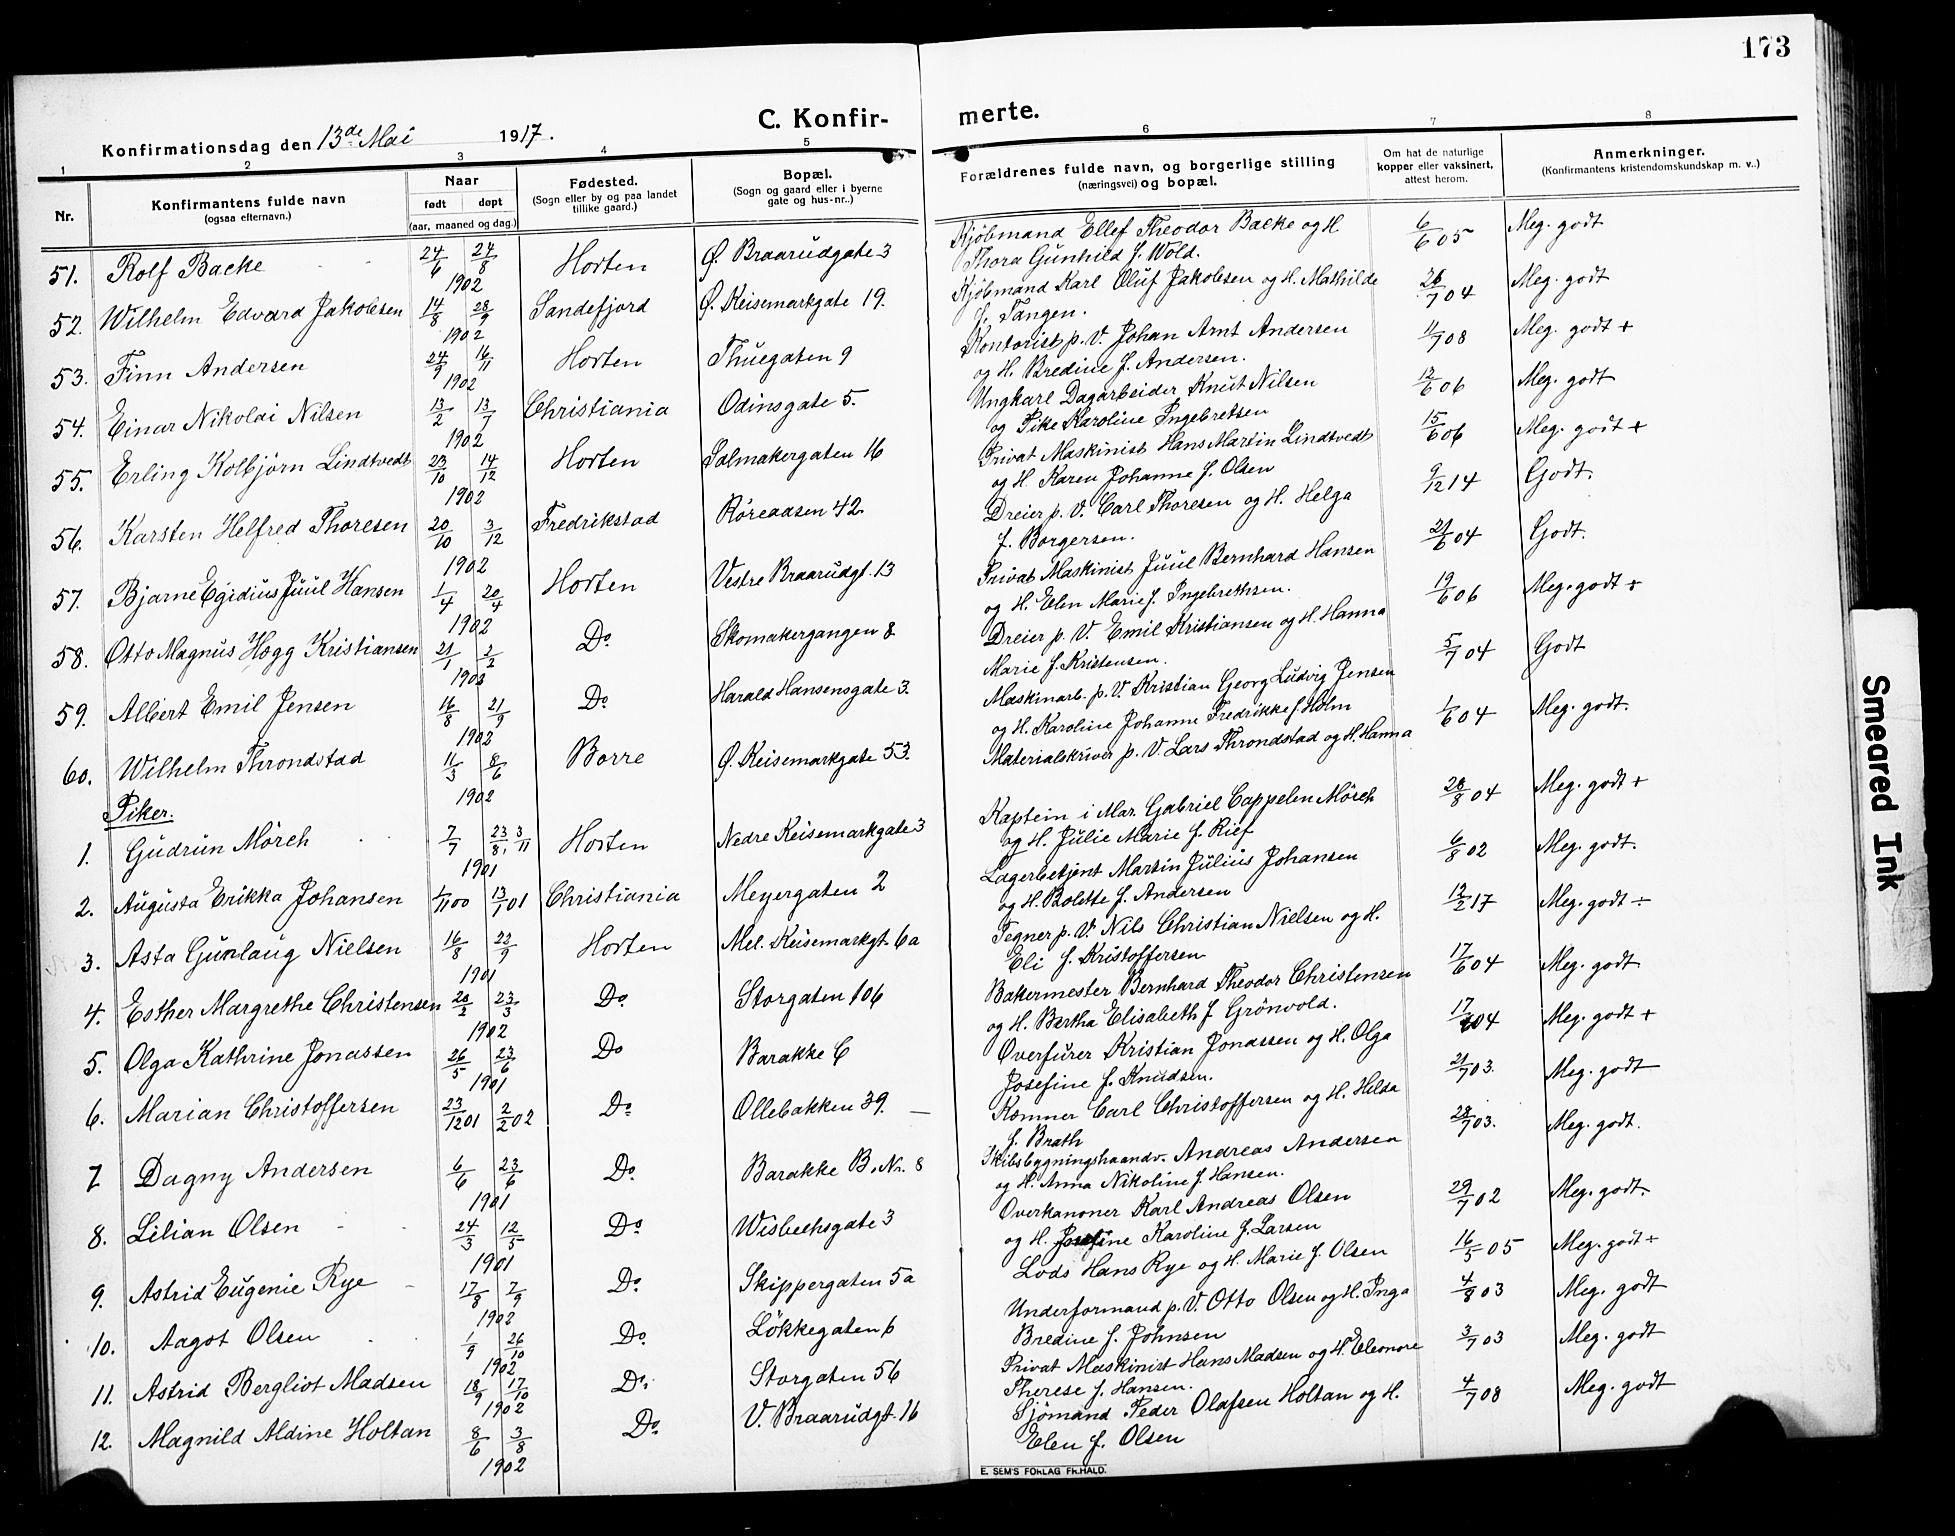 173
C. Konfir- merte.
Konfirmationsdag den 13de Mai 1917.
1 2 3 4 5 6 7 8
Nr.
Konfirmantens fulde navn
(ogsaa efternavn.)
Naar
født døpt
(aar, maaned og dag.)
Fødested.
(Sogn eller by og paa landet
tillike gaard.)
Bopæl.
(Sogn og gaard eller i byerne
gate og hus-nr.)
Forældrenes fulde navn, og borgerlige stilling
(næringsvei) og bopæl.
Om hat de naturlige
kopper eller vaksinert,
attest herom.
Anmerkninger.
(Konfirmantens kristendomskundskap m. v..)
51. Rolf Backe 24/6 24/8 1902 Horten Ø. Braarudgate 3 Kjøbmand Ellef Theodor Backe og H. 6/6 05 Meg. godt
Thora Gunhild f. Wold.
52. Wilhelm Edvard Jakobsen 14/8 28/9 1902 Sandefjord Ø. Keisemarkgate 19. Kjøbmand Karl Oluf Jakobsen og H. Mathilde 26/7 04 Meg. godt
f. Tangen.
53. Finn Andersen 24/9 16/11 1902 Horten Thuegaten 9 Kontorist p. V. Johan Arnt Andersen 11/7 08 Meg. godt +
og H. Bredine f. Andersen.
54. Einar Nikolai Nilsen 13/2 13/7 1902 Christiania Odinsgate 5. Ungkarl Dagarbeider Knut Nilsen 12/6 06 Meg. godt
og Pike Karoline Ingebretsen
55. Erling Kolbjörn Lindtvedt 23/10 14/12 1902 Horten Salmakergaten 16 Privat Maskinist Hans Martin Lindtvedt 15/6 06 Meg. godt +
og H. Karen Johanne f. Olsen
56. Karsten Helfred Thoresen 20/10 3/12 1902 Fredrikstad Røreaasen 42 Dreier p. V. Carl Thoresen og H. Helga 9/12 14 Godt.
f. Borgersen.
57. Bjarne Egidius Juul Hansen 1/4 20/4 1902 Horten Vestre Braarudgt. 13 Privat Maskinist Juul Bernhard Hansen 21/6 04 Godt.
og H. Elen Marie f. Ingebrethsen.
58. Otto Magnus Høgg Kristiansen 21/1 2/2 1902 Do Skomakergangen 8 Dreier p. V. Emil Kristiansen og H. Hanna 19/6 06 Meg. godt +
Marie f. Kristensen.
59. Albert Emil Jensen 16/8 21/9 1902 Do Harald Hansensgate 3. Maskinarb. p. V. Kristian Georg Ludvig Jensen 5/7 04 Godt
og H. Karoline Johanne Fredrikke f. Holm
60. Wilhelm Throndstad 11/3 8/6 1902 Borre Ø. Keisemarkgate 53. Materialskriver p. V. Lars Throndstad og H. Hanna 1/6 04 Meg. godt.
Piker.
1. Gudrun Mörch 7/7 23/8, 3/11 1901 Horten Nedre Keisemarkgate 3 Kaptein i Mar. Gabriel Cappelen Mörch 28/8 04 Meg. godt +
og H. Julie Marie f. Rief
2. Augusta Erikka Johansen 1/11 00 13/1 01 Christiania Meyergaten 2 Lagerbetjent Martin Julius Johansen 6/8 02 Meg. godt.
og H. Bolette f. Andersen
3. Asta Gunlaug Nielsen 16/8 22/9 1901 Horten Mel. Keisemarkgt. 6a Tegner p. V. Nils Christian Nielsen og H. 12/2 17 Meg. godt ÷
Eli f. Kristoffersen
4. Esther Margrethe Christensen 20/2 23/3 1902 Do Storgaten 106 Bakermester Bernhard Theodor Christensen 17/6 04 Meg. godt
og H. Bertha Elisabeth f. Grönvold.
5. Olga Kathrine Jonassen 26/5 23/6 1901 Do Barakke C Overfürer Kristian Jonassen og H. Olga 17/04 Meg. godt +
Josefine f. Knudsen.
6. Marian Christoffersen 23/12 01 2/2 02 Do Ollebakken 39. Christoffersen og H. Hilda 21/7 03. Meg. godt
Carl f. Brath
7 Dagny Andersen 6/6 23/6 1901 Do Barakke B. Nr. 8 Skibsbygningshaandv. Andreas Andersen 28/7 03. Meg. godt.
og H. Anna Nikoline f. Hansen.
8. Lilian Olsen 24/3 12/5 1901 Do Wisbechsgate 3 Overkanoner Karl Andreas Olsen 29/7 02 Meg. godt.
og H. Josefine Karoline f. Larsen
9. Astrid Eugenie Rye 17/8 7/9 1902 Do Skippergaten 5a Lods Hans Rye og H. Marie f. Olsen 16/5 05 Meg. godt +
10. Aagot Olsen 1/9 26/10 1902 Do Løkkegaten 6 Underformand p. V. Otto Olsen og H. Inga 4/8 03 Meg. godt
Bredine f. Johnsen
11. Astrid Bergliot Madsen 18/9 17/10 1902 Do. Storgaten 56 Privat Maskinist Hans Madsen og H. Eleonore 3/7 03 Meg. godt
Therese f. Hansen.
12. Magnild Aldine Holtan 8/6 3/8 1902 Do V. Braarudgt. 16 Sjömand Peder Olafsen Holtan og H. 4/7 08 Meg. godt
Elen f. Olsen
E. SEM'S FORLAG FR.HALD.
Smeared Ink